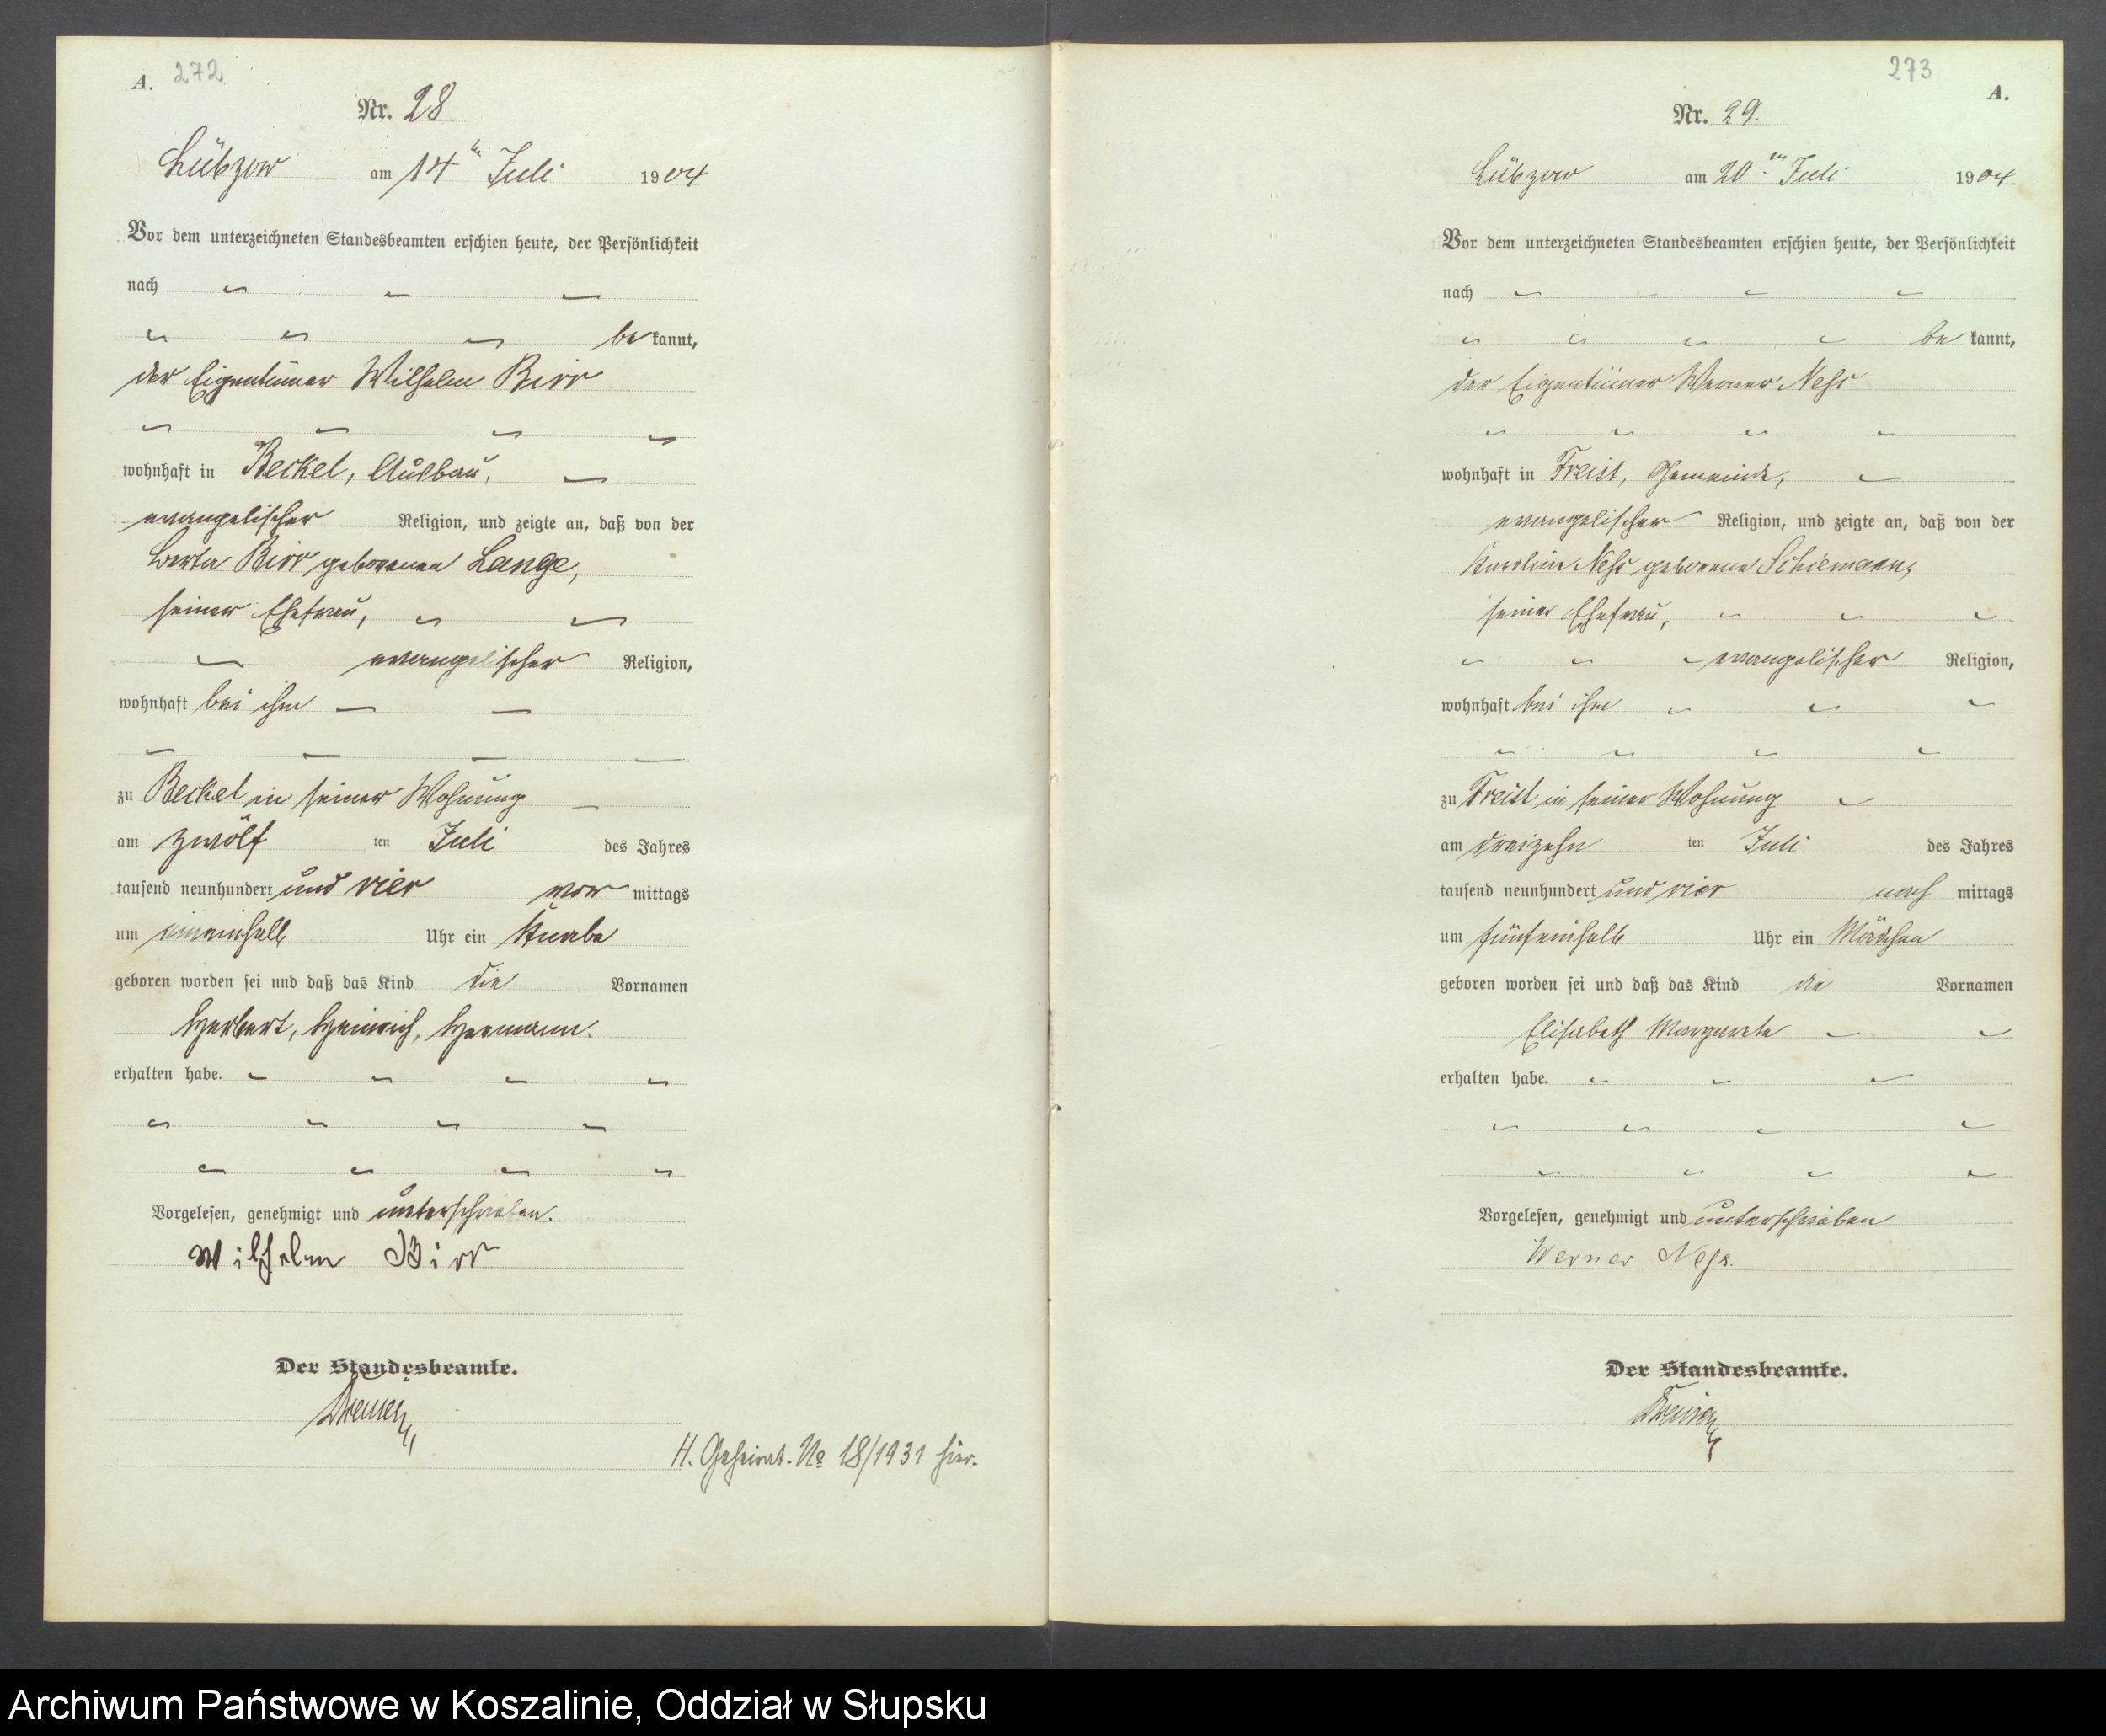 A. 272
Nr. 28
Lübzow am 14ten Juli 1904
Vor dem unterzeichneten Standesbeamten erschien heute, der Persönlichkeit
nach
be kannt,
der Eigentümer Wilhelm Birr
wohnhaft in Beckel, Ausbau,
evangelischer Religion, und zeigte an, daß von der
Berta Birr geborenen Lange,
seiner Ehefrau,
evangelischer Religion,
wohnhaft bei ihm
zu Beckel in seiner Wohnung
am zwölf ten Juli des Jahres
tausend neunhundert und vier vor mittags
um eineinhalb Uhr ein Knabe
geboren worden sei und daß das Kind die Vornamen
Herbert, Heinrich, Hermann.
erhalten habe.
Vorgelesen, genehmigt und unterschrieben.
Wilhelm Birr
Der Standesbeamte.
H. Geheirat. No 18/1931 hier.
273
A.
Nr. 29.
Lübzow am 20ten Juli 1904
Vor dem unterzeichneten Standesbeamten erschien heute, der Persönlichkeit
nach
be kannt,
der Eigentümer Werner Neß
wohnhaft in Freist, Gemeinde,
evangelischer Religion, und zeigte an, daß von der
Karoline Neß geborene Schiemann,
seiner Ehefrau,
evangelischer Religion,
wohnhaft bei ihm
zu Freist in seiner Wohnung
am dreizehn ten Juli des Jahres
tausend neunhundert und vier nach mittags
um fünfeinhalb Uhr ein Mädchen
geboren worden sei und daß das Kind die Vornamen
Elisabeth Margarete
erhalten habe.
Vorgelesen, genehmigt und unterschrieben
Werner Neß.
Der Standesbeamte.
Archiwum Państwowe w Koszalinie, Oddział w Słupsku